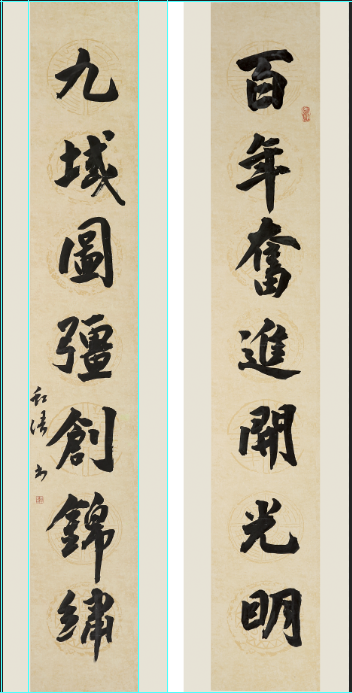 百年奮進開光明
九域圖彊創錦繡